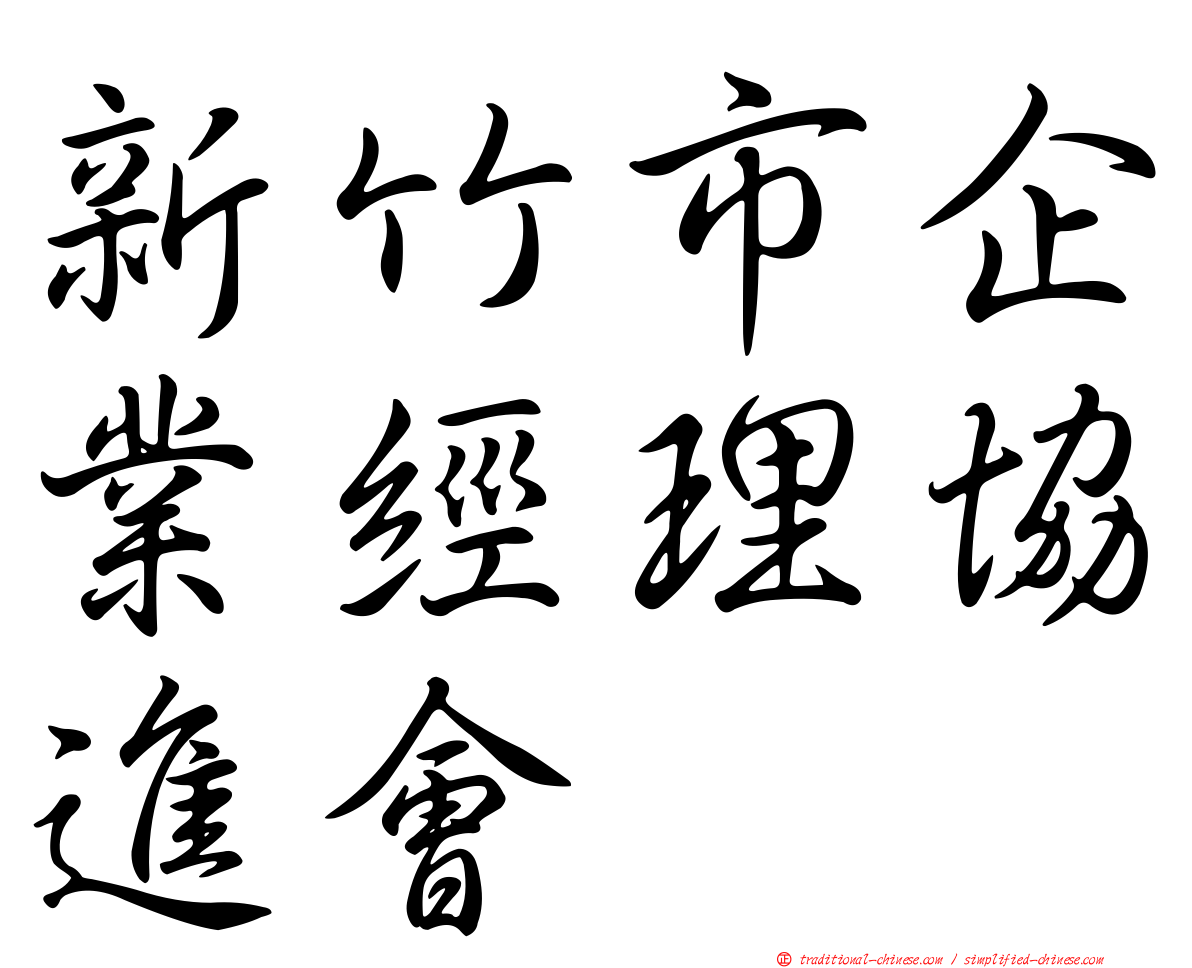 新竹市企
業經理協
進會
㊣ traditional-chinese.com / simplified-chinese.com